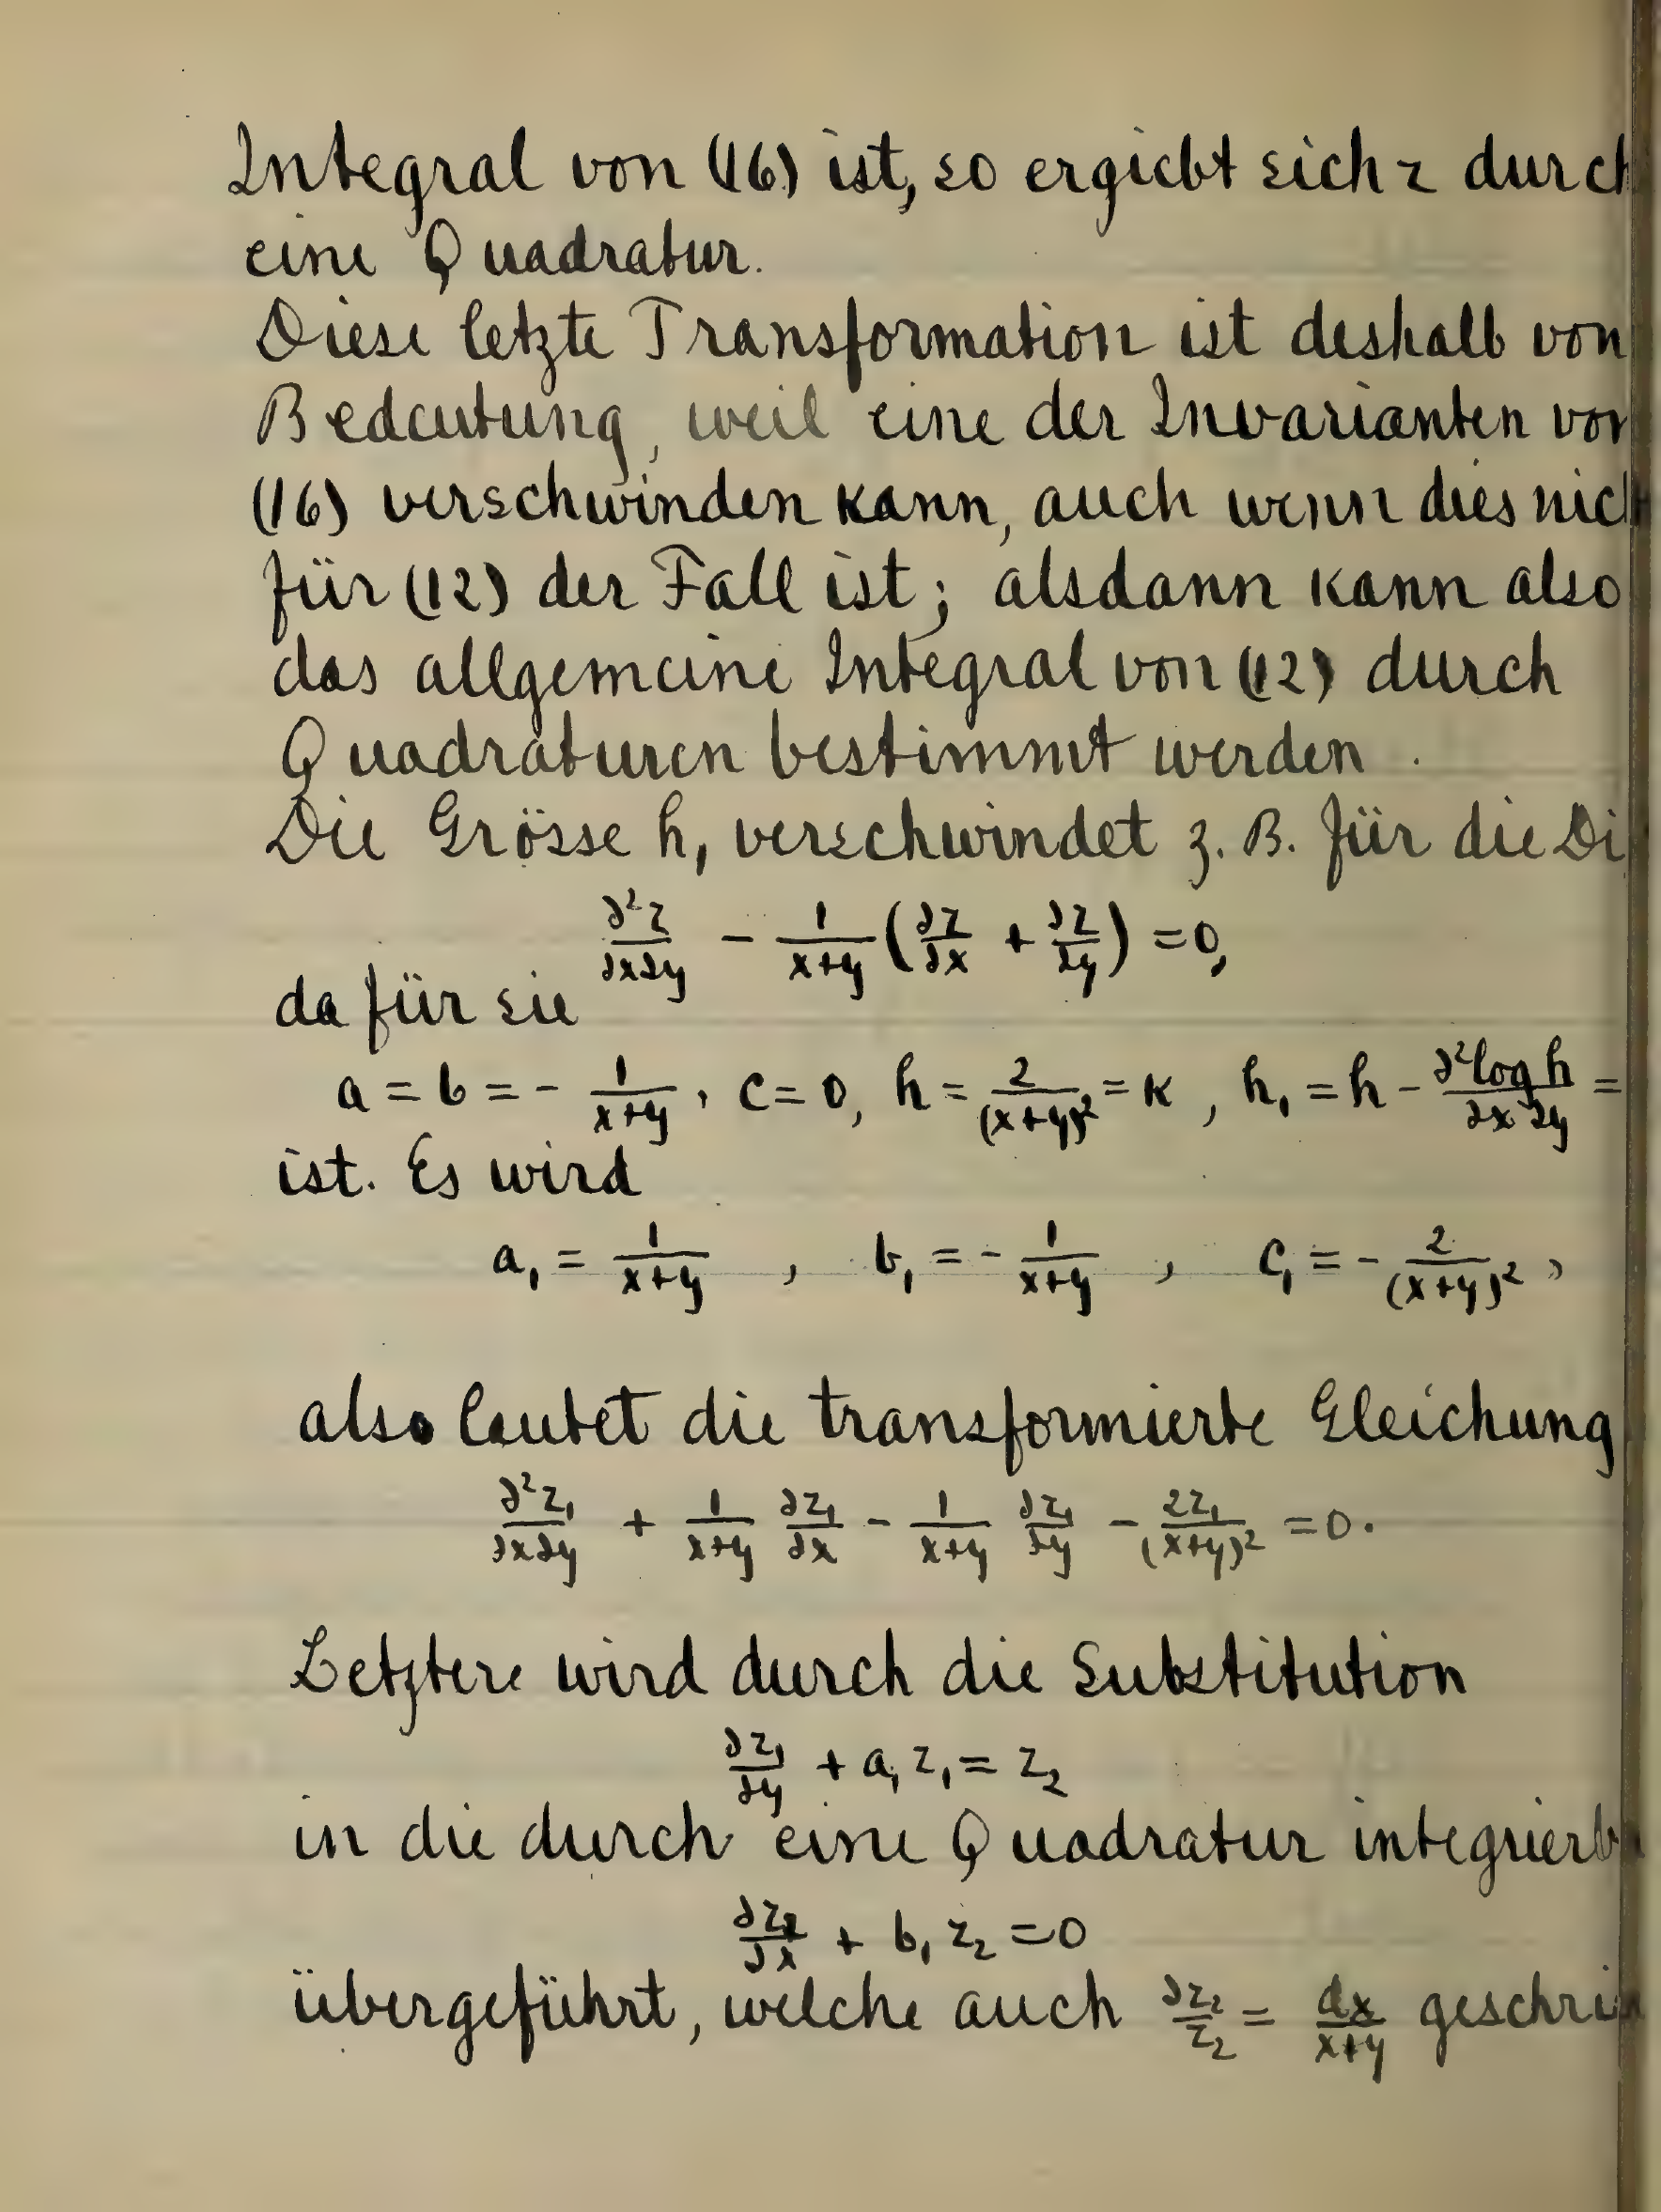 Integral von (16) ist, so ergiebt sich z durch
eine Quadratur.
Diese letzte Transformation ist deshalb von
Bedeutung, weil eine der Invarianten von
(16) verschwinden kann, auch wenn dies nich
für (12) der Fall ist; alsdann kann also
das allgemeine Integral von (12) durch
Quadraturen bestimmt werden.
Die Grösse h₁ verschwindet z. B. für die Di
∂²z/∂x∂y - 1/(x+y) (∂z/∂x + ∂z/∂y) = 0,
da für sie
a = b = - 1/(x+y), c = 0, h = 2/(x+y)² = k, h₁ = h - ∂² log h/∂x∂y =
ist. Es wird
a₁ = 1/(x+y), b₁ = - 1/(x+y), c₁ = - 2/(x+y)²,
also lautet die transformierte Gleichung
∂²z₁/∂x∂y + 1/(x+y) ∂z₁/∂x - 1/(x+y) ∂z₁/∂y - 2z₁/(x+y)² = 0.
Letztere wird durch die Substitution
∂z₁/∂y + a₁z₁ = z₂
in die durch eine Quadratur integrierb
∂z₂/∂x + b₁z₂ = 0
übergeführt, welche auch ∂z₂/z₂ = dx/(x+y) geschri